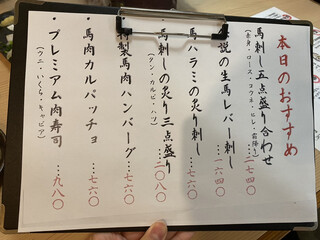 本日のおすすめ
馬刺し五点盛り合わせ
(赤身・ロース・コウネ・ヒレ・霜降り)
…二七四〇
説の生馬レバー刺し
…一六四〇
馬ハラミの炙り刺し
…七六〇
馬刺しの炙り三点盛り
(タン・カルビ・ハツ)
…二〇八〇
製馬肉ハンバーグ…七六〇
・馬肉カルパッチョ
…七六〇
・プレミアム肉寿司
(ウニ・いくら・キャビア)
…九八〇